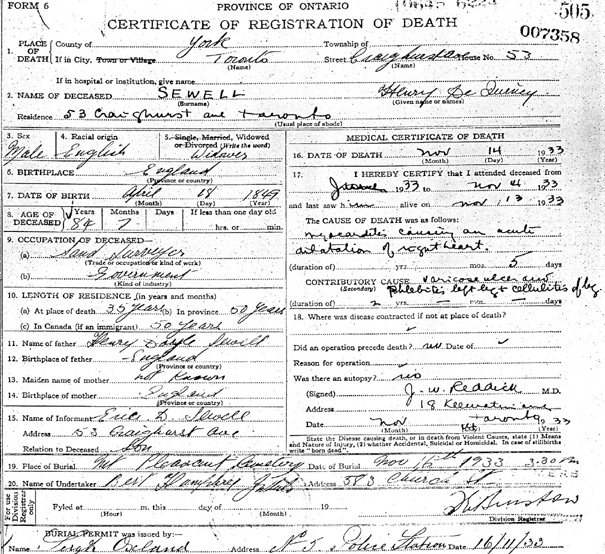 FORM 6
PROVINCE OF ONTARIO
505
CERTIFICATE OF REGISTRATION OF DEATH
007358
1. PLACE OF DEATH County of York Township of
If in City, Town or Village Toronto Street Craighurst Ave House No. 53
(Name) (Name)
If in hospital or institution, give name
2. NAME OF DECEASED SEWELL Henry De Quincy
(Surname) (Given name or names)
Residence 53 Craighurst ave Toronto
(Usual place of abode)
3. Sex 4. Racial origin 5. Single, Married, Widowed or Divorced (Write the word)
Male English Widower
6. BIRTHPLACE England
(Province or country)
7. DATE OF BIRTH April 18 1849
(Month) (Day) (Year)
8. AGE OF DECEASED Years Months Days If less than one day old
84 7 hrs. or min.
9. OCCUPATION OF DECEASED—
(a) Land Surveyor
(Trade or occupation or kind of work)
(b) Government
(Kind of industry)
10. LENGTH OF RESIDENCE (in years and months)
(a) At place of death 35 years (b) In province 50 years
(c) In Canada (if an immigrant) 50 years
11. Name of father Henry Doyle Sewell
12. Birthplace of father England
(Province or country)
13. Maiden name of mother not Known
14. Birthplace of mother England
(Province or country)
15. Name of Informant Eric D. Sewell
Address 53 Craighurst Ave
Relation to Deceased Son
MEDICAL CERTIFICATE OF DEATH
16. DATE OF DEATH Nov 14 1933
(Month) (Day) (Year)
17. I HEREBY CERTIFY that I attended deceased from
1933 to Nov 14 1933
and last saw him alive on Nov 13 1933
The CAUSE OF DEATH was as follows:
myocarditis causing an acute
dilatation of right heart.
(duration of) yrs. mos. 5 days
CONTRIBUTORY CAUSE varicose ulcer and
(Secondary) Phlebitis left leg + cellulitis of leg
(duration of) 2 yrs. — mos. — days
18. Where was disease contracted if not at place of death?
Did an operation precede death? no Date of
Reason for operation
Was there an autopsy? no
(Signed) J. W. Reddick M.D.
Address 18 Keewatin ave
Date Nov Toronto 1933
(Month) (Day) (Year)
State the Disease causing death, or in death from Violent Causes, state (1) Means and Nature of Injury, (2) whether Accidental, Suicidal or Homicidal. In case of stillbirths write "born dead".
19. Place of Burial Mt Pleasant Cemetery Date of Burial Nov 16th 1933 3.30 PM
20. Name of Undertaker Bert Humphrey Address 583 Church St
For use of Division Registrar only
Filed at Hour m. this day of 19
(Hour) (Month)
Division Registrar
BURIAL PERMIT was issued by:—
Address No 5 Police Station Date 16/11/33